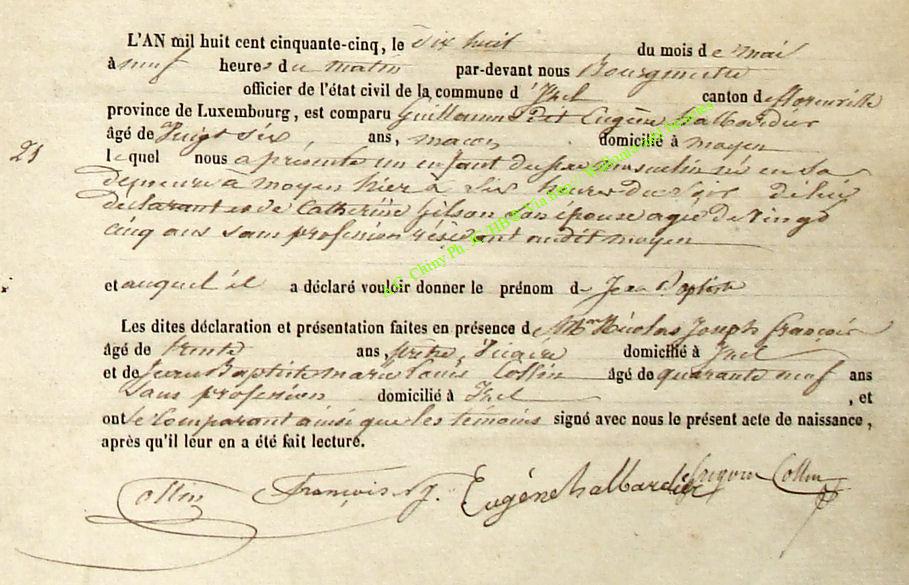 L'AN mil huit cent cinquante-cinq, le dix huit du mois de mai
à neuf heures du matin par-devant nous Bourgmestre
officier de l'état civil de la commune d'Izel canton de florenville
province de Luxembourg, est comparu Guillaume Eugène halbardier
âgé de Vingt six ans, maçon domicilié à moyen
21
lequel nous a présenté un enfant du sexe masculin né en sa
demeure à moyen hier à six heures du soir de lui
déclarant et de Catherine Gilson son épouse agée de Vingt
cinq ans sans profession résidant audit moyen
et auquel il a déclaré vouloir donner le prénom de Jean Baptiste
Les dites déclaration et présentation faites en présence de Nicolas Joseph françois
âgé de trente ans, prêtre, Vicaire domicilié à Izel
et de Jean Baptiste marie Louis Collin âgé de quarante neuf ans
Sans profession domicilié à Izel , et
ont le Comparant ainsi que les témoins signé avec nous le présent acte de naissance,
après qu'il leur en a été fait lecture.
Collin françois Eugène halbardier Collin